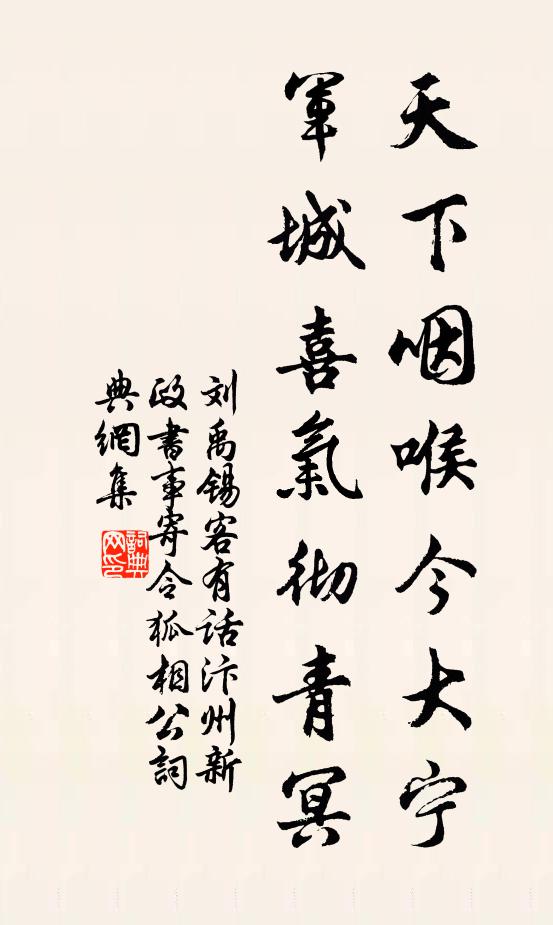 天下咽喉今大宁
軍城喜氣彻青冥
刘禹锡客有话汴州新
政書事寄令狐相公詞
典網集
詞典
网印